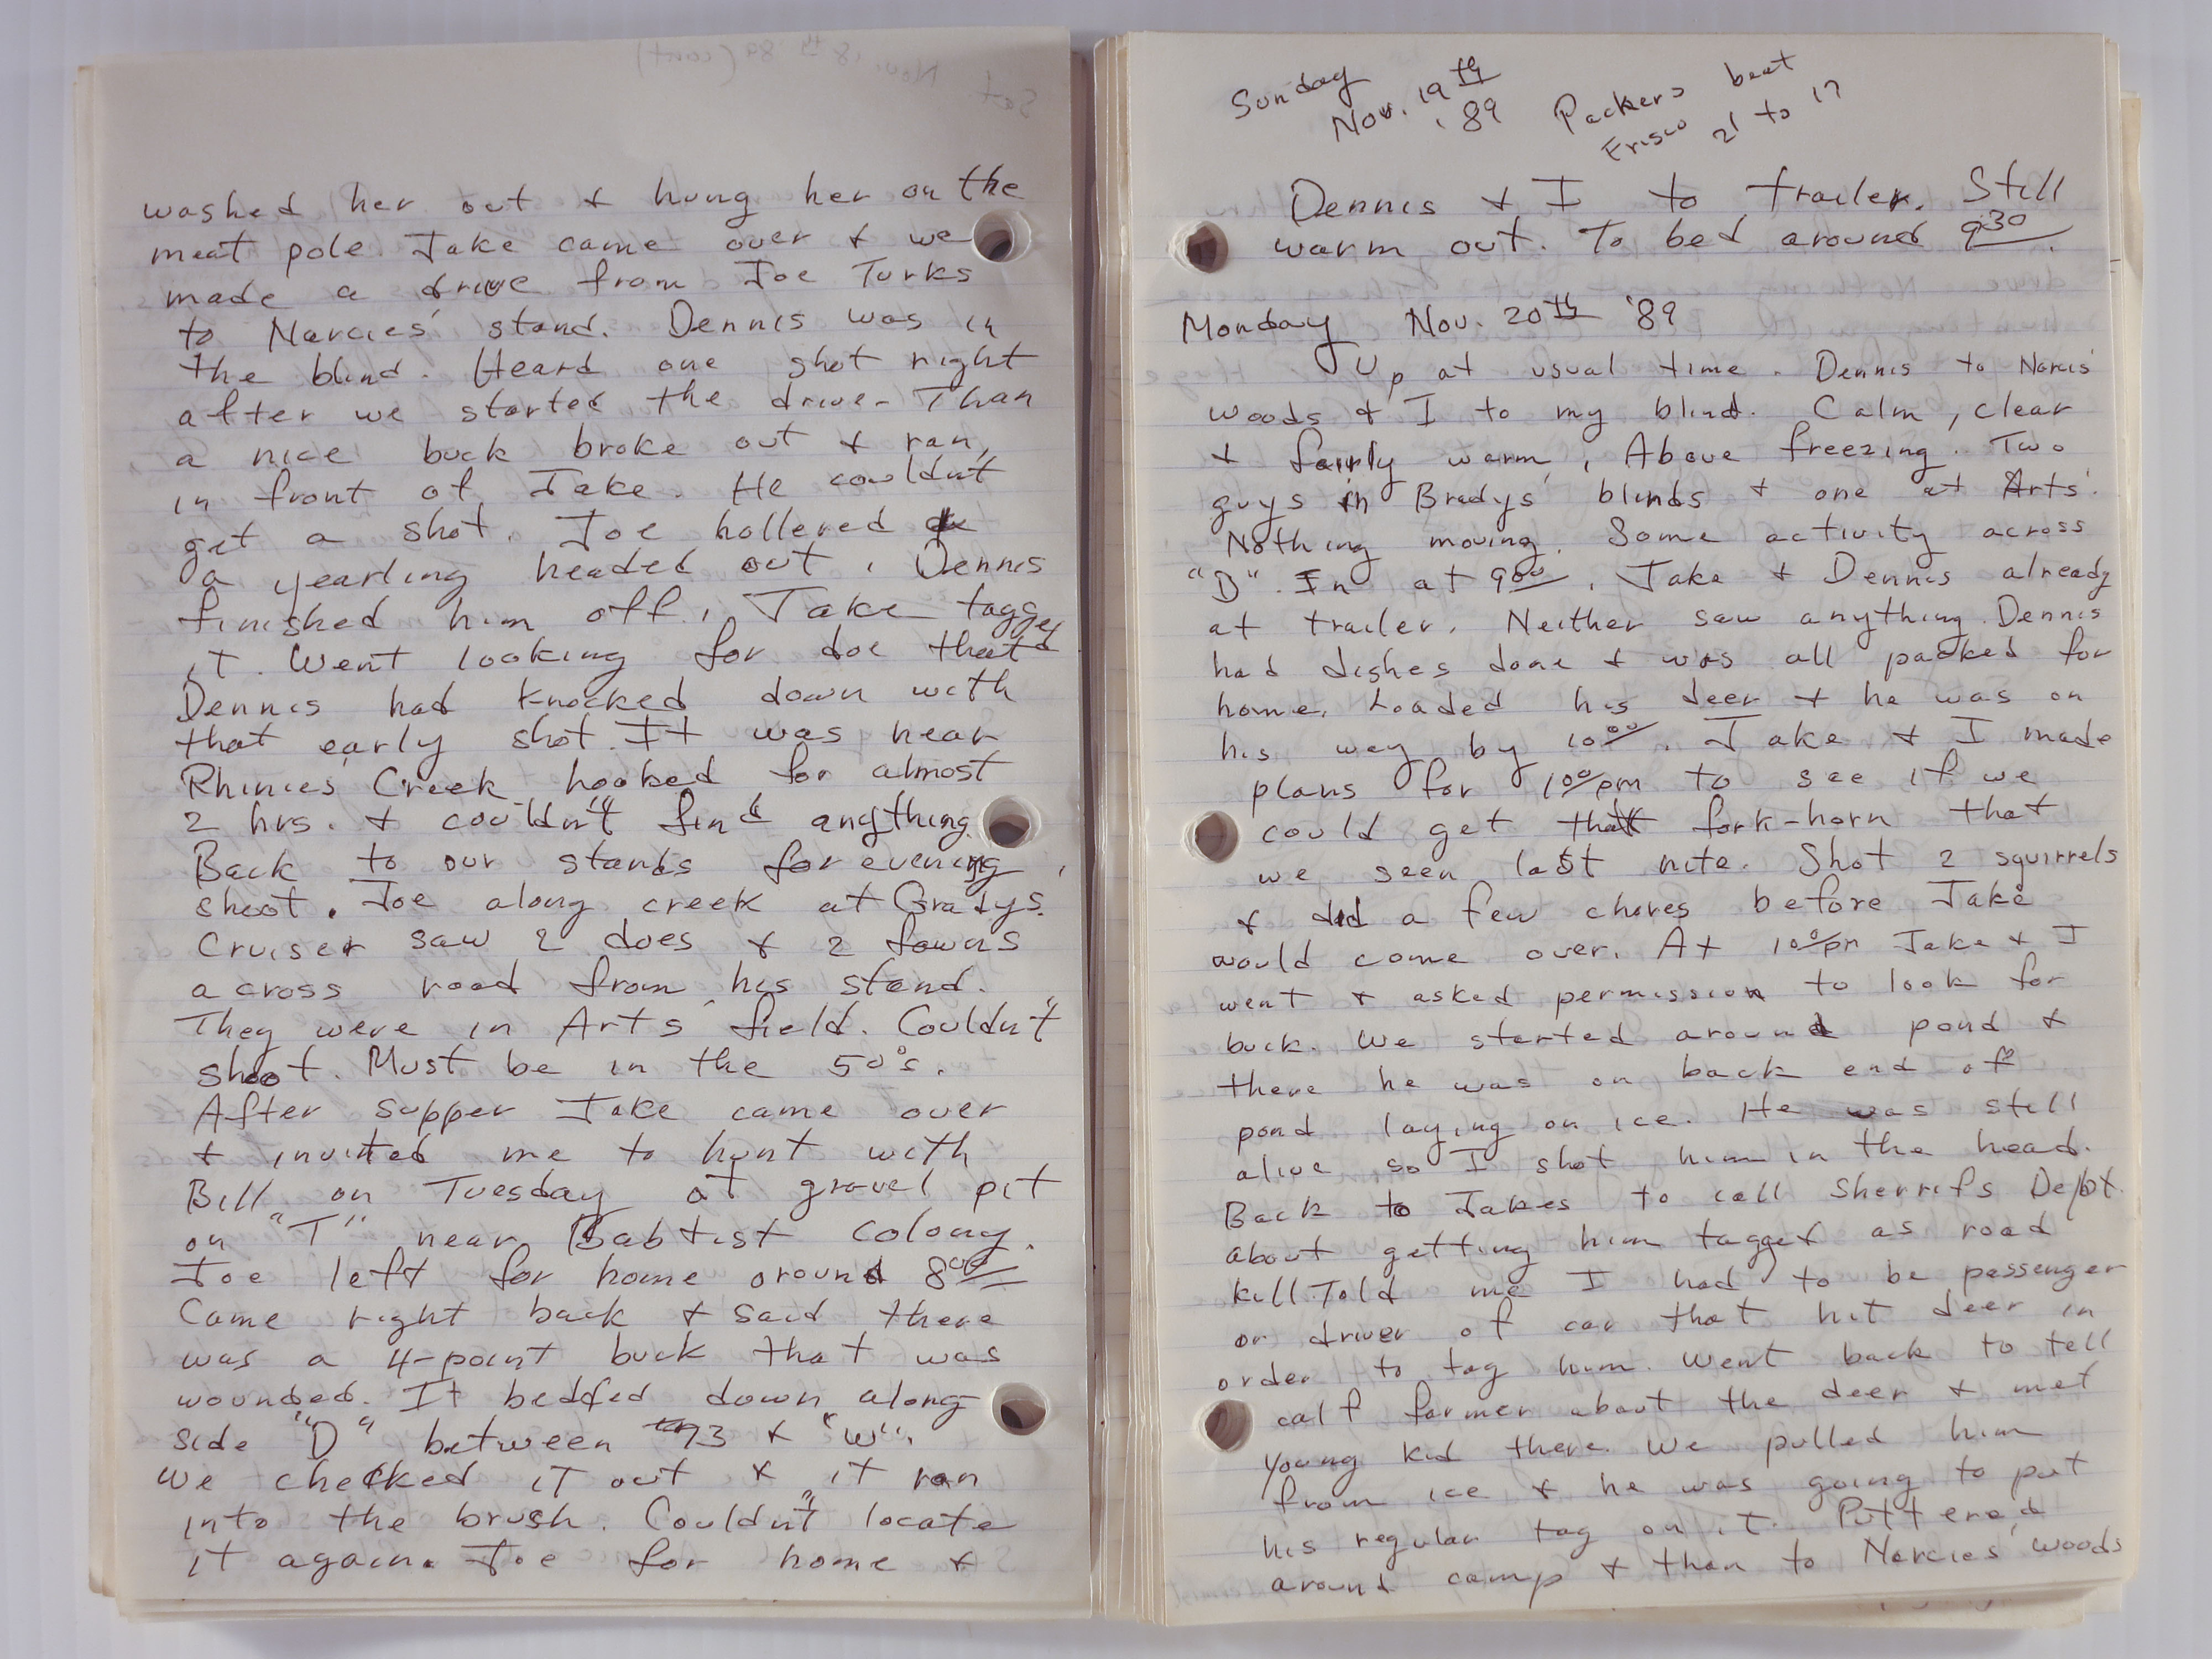 washed her out & hung her on the
meat pole. Jake came over & we
made a drive from Joe Turks
to Narcies' stand. Dennis was in
the blind. Heard one shot right
after we started the drive. Than
a nice buck broke out & ran
in front of Jake. He couldn't
get a shot. Joe hollered
a yearling headed out. Dennis
finished him off. Jake tagged
it. Went looking for doe that
Dennis had knocked down with
that early shot. It was near
Rhinies' Creek. hooked for almost
2 hrs. & couldn't find anything.
Back to our stands for evening
shoot. Joe along creek at Gradys.
Cruiser saw 2 does & 2 fawns
across road from his stand.
They were in Arts' field. Couldn't
shoot. Must be in the 50°s.
After supper Jake came over
& invited me to hunt with
Bill on Tuesday at gravel pit
on "T" near Babtist colony.
Joe left for home around 8⁰⁰
Came right back & said there
was a 4-point buck that was
wounded. It bedded down along
side "D" between 93 & "W".
We checked it out & it ran
into the brush. Couldn't locate
it again. Joe for home &
Sunday
Nov. 19th '89
Packers beat
Frisco 21 to 17
Dennis & I to trailer. Still
warm out. To bed around 9³⁰.
Monday Nov. 20th '89
Up at usual time. Dennis to Narcis'
woods & I to my blind. Calm, clear
& fairly warm. Above freezing. Two
guys in Bradys' blinds & one at Arts'.
Nothing moving. Some activity across
"D". In at 9⁰⁰. Jake & Dennis already
at trailer. Neither saw anything. Dennis
had dishes done & was all packed for
home. Loaded his deer & he was on
his way by 10⁰⁰. Jake & I made
plans for 1⁰⁰pm to see if we
could get that fork-horn that
we seen last nite. Shot 2 squirrels
& did a few chores before Jake
would come over. At 1⁰⁰pm Jake & I
went & asked permission to look for
buck. We started around pond &
there he was on back end of
pond laying on ice. He was still
alive so I shot him in the head.
Back to Jakes to call Sherrifs Dept.
about getting him tagged as road
kill. Told me I had to be passenger
or driver of car that hit deer in
order to tag him. Went back to tell
calf farmer about the deer & met
young kid there. We pulled him
from ice & he was going to put
his regular tag on it. Puttered
around camp & than to Narcies' woods